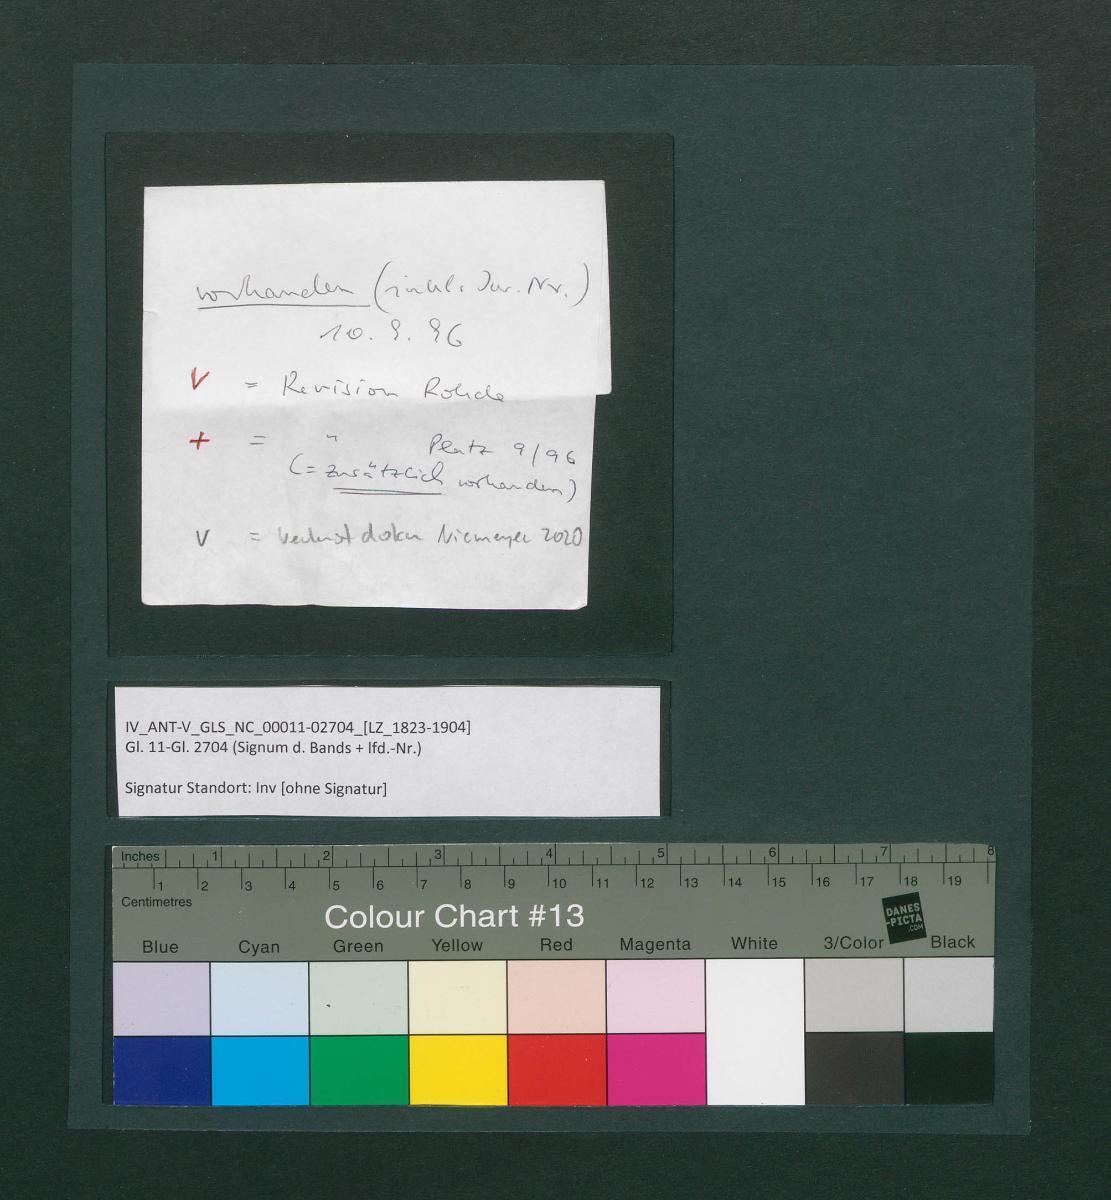 vorhanden (inkl. Inv. Nr.)
10. 9. 96
V = Revision Rohde
+ = " Platz 9/96
(= zusätzlich vorhanden)
V = Verlust doku Niemeyer 2020
IV_ANT-V_GLS_NC_00011-02704_[LZ_1823-1904]
Gl. 11-Gl. 2704 (Signum d. Bands + lfd.-Nr.)
Signatur Standort: Inv [ohne Signatur]
Inches 1 2 3 4 5 6 7 8
1 2 3 4 5 6 7 8 9 10 11 12 13 14 15 16 17 18 19
Centimetres
Colour Chart #13
DANES
-PICTA
.COM
Blue Cyan Green Yellow Red Magenta White 3/Color Black